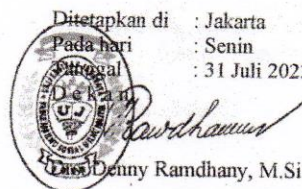 Ditetapkan di : Jakarta
Pada hari : Senin
Tanggal : 31 Juli 202
Dekan
Denny Ramdhany, M.Si